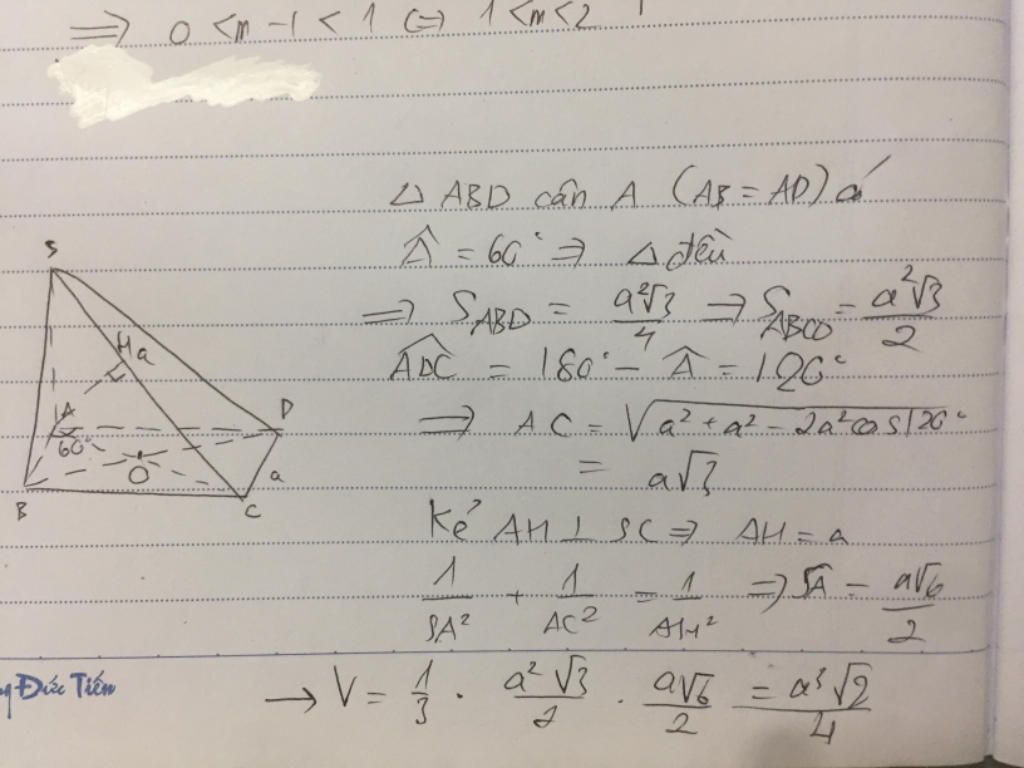 ⇒ 0 < m - 1 < 1 ⇔ 1 < m < 2
Δ ABD cân A (AB = AD) có
Â = 60° ⇒ Δ đều
⇒ S_ABD = a²√3/4 → S_ABCD = a²√3/2
ADC = 180° - Â = 120°
⇒ AC = √(a² + a² - 2a²cos120°)
= a√3
Kẻ AH ⊥ SC ⇒ AH = a
1/SA² + 1/AC² = 1/AH² ⇒ SA = a√6/2
→ V = 1/3 . a²√3/2 . a√6/2 = a³√2/4
S
H a
A
60°
D
O
a
B
C
Đức Tiến